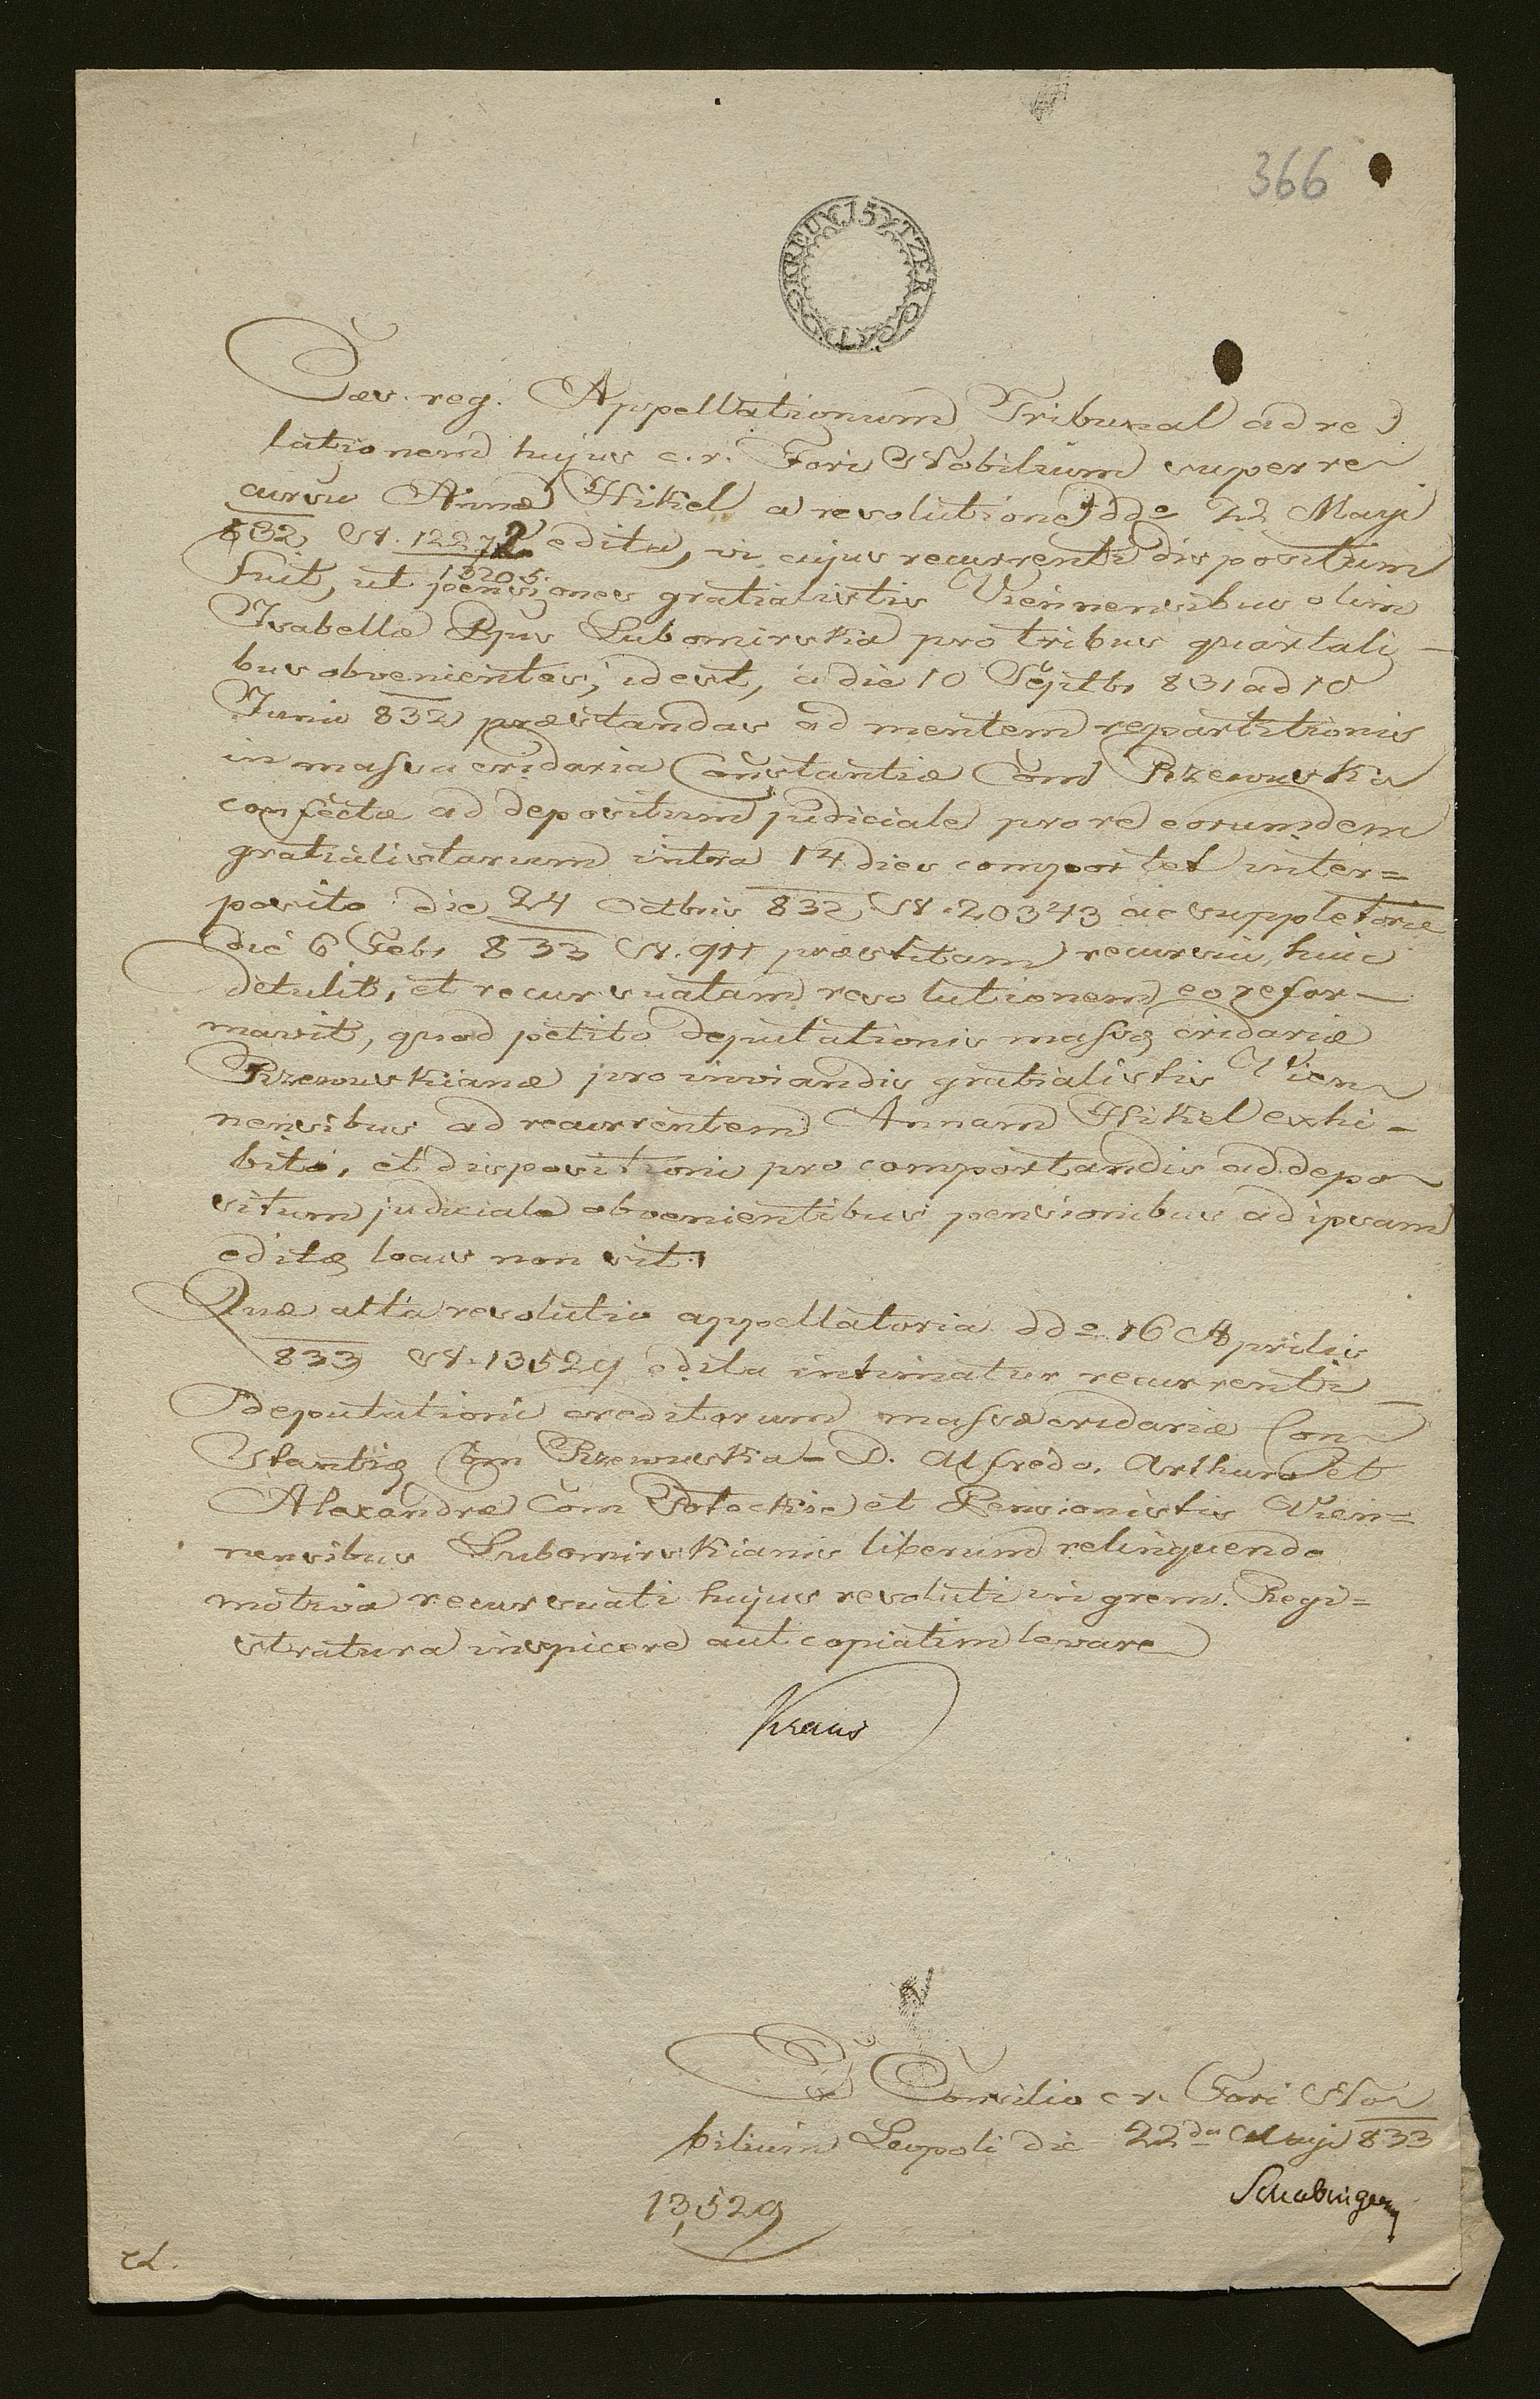 366
15 KREUTZER
Cæs. reg. Appellationum Tribunal ad re
lationem hujus c. r. Fori Nobilium super re
cursu Annæ Hikel a resolutione ddo 22 Maji
832 N. 12272 edita, vi cujus recurrenti dispositum
13205.
fuit, ut pensiones gratialistis Viennensibus olim
Isabellæ Ppis Lubomirska pro tribus quartali
bus obvenientes, idest, a die 10 Septbr 831 ad 10
Junii 832 præstandas ad mentem repartitionis
in massa cridaria Constantiæ Com Rzewuska
confectæ ad depositum judiciale pro re eorumdem
gratialistarum intra 14 dies comportet inter=
posito die 24 Octbris 832 N. 20343 ac suppletorie
die 6 Febr 833 N. 911 præstitam recursui, huic
detulit, et recursuatam resolutionem eo refor-
mavit, quod petito deputationis massæ cridariæ
Rzewuskianæ pro inviandis gratialistis Vien
nensibus ad recurrentem Annam Hikel exhi-
bito, et dispositioni pro comportandis ad depo
situm judiciale obvenientibus pensionibus ad ipsam
editæ locus non sit.
Quæ alta resolutio appellatoria ddo 16 Aprilis
833 N. 13529 edita intimatur recurrenti
Deputationi creditorum massæ cridariæ Con
stantiæ Com Rzewuska - D. Alfredo, Arthuro et
Alexandræ Com Potockie et Pensionistis Vien=
nensibus Lubomirskianis liberum relinquendo
motiva recursuati hujus resoluti in grem. Regi=
stratura inspicere aut copiatim levare
Kraus
Ex Consilio c r. Fori No
bilium Leopoli die 22da Maji 833
13,529